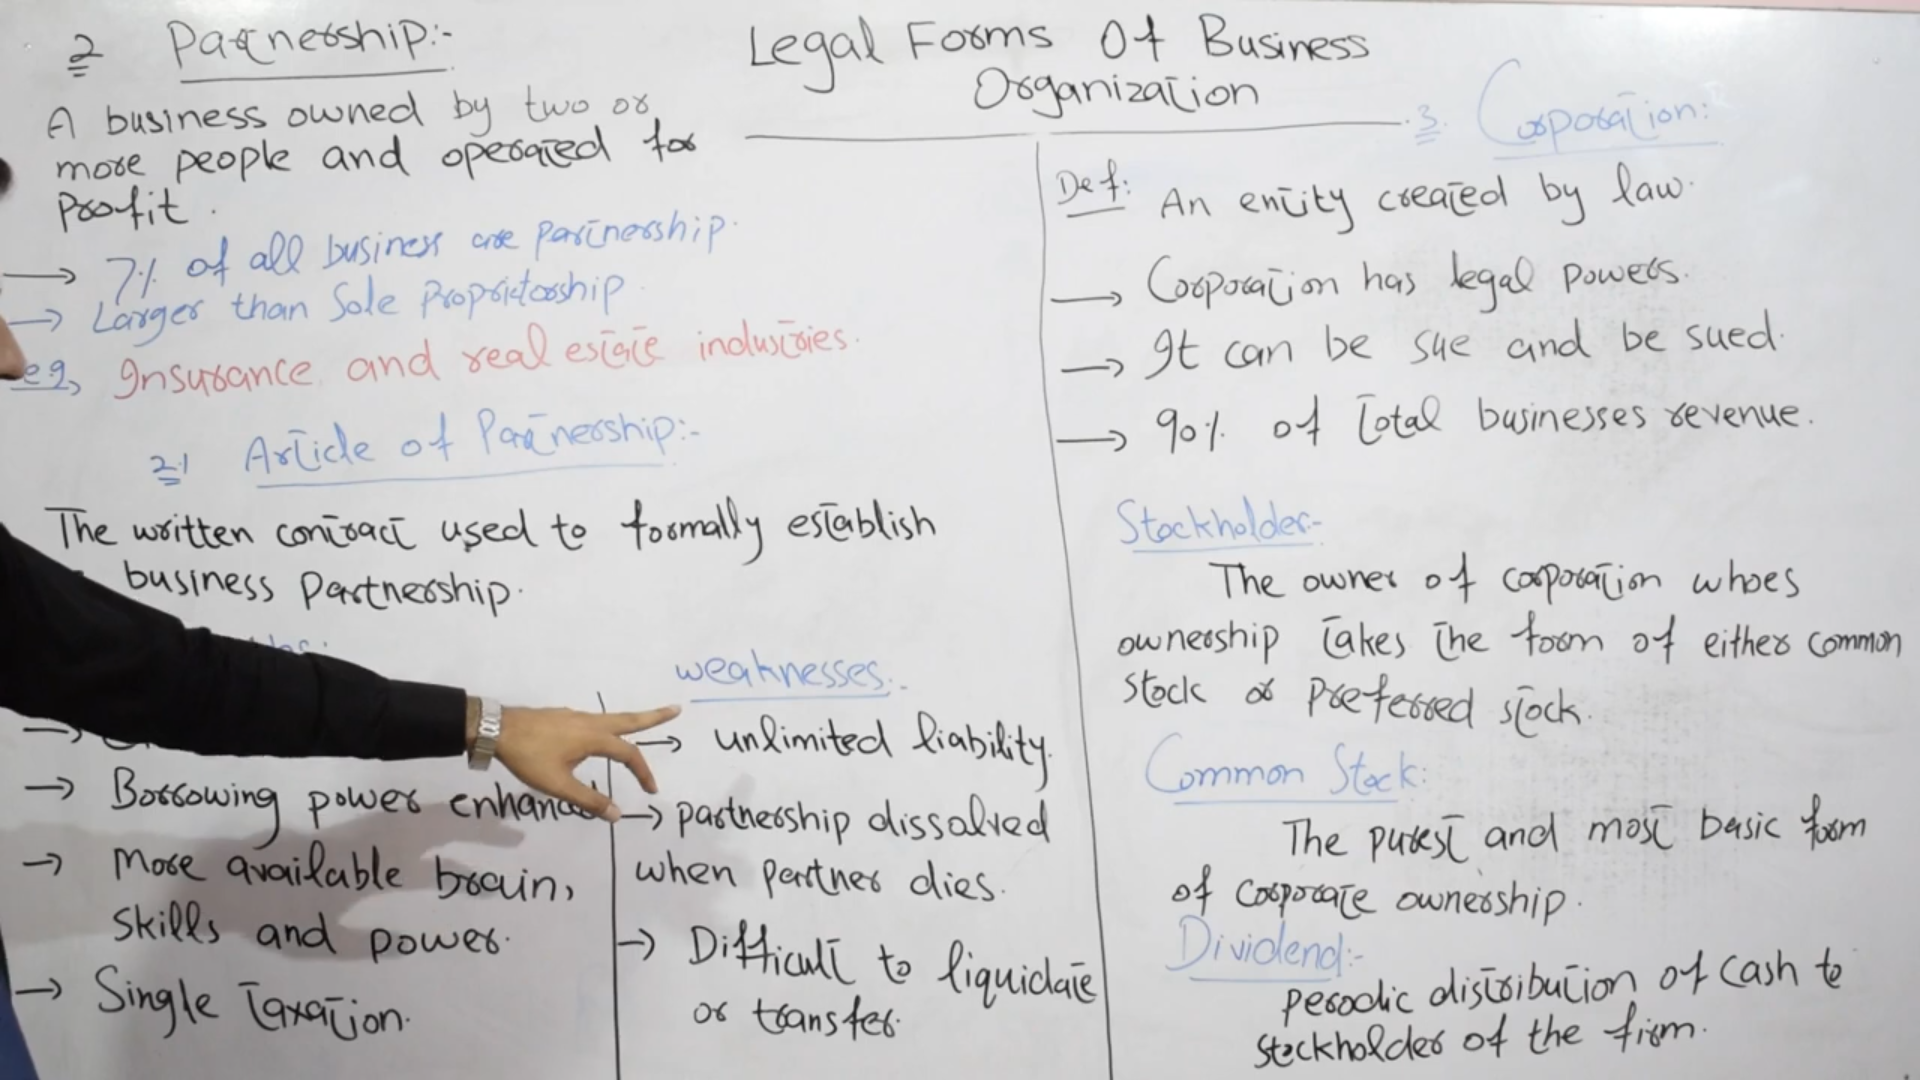 Legal Forms Of Business
Organization
2 Partnership:-
A business owned by two or
more people and operated for
Profit.
→ 7% of all business are partnership.
→ Larger than Sole Proprietorship
eg, Insurance and real estate industries.
2.1 Article of Partnership:-
The written contract used to formally establish
business Partnership.
→ Borrowing power enhanced
→ More available brain,
skills and power.
→ Single Taxation.
weaknesses:-
→ unlimited liability.
→ partnership dissolved
when partner dies.
→ Difficult to liquidate
or transfer.
3. Corporation:
Def: An entity created by law.
→ Corporation has legal powers.
→ It can be sue and be sued.
→ 90% of Total businesses revenue.
Stockholder:-
The owner of corporation whoes
ownership Takes The form of either common
Stock or Preferred stock.
Common Stock:
The purest and most basic form
of corporate ownership.
Dividend:-
perodic distribution of cash to
stockholder of the firm.